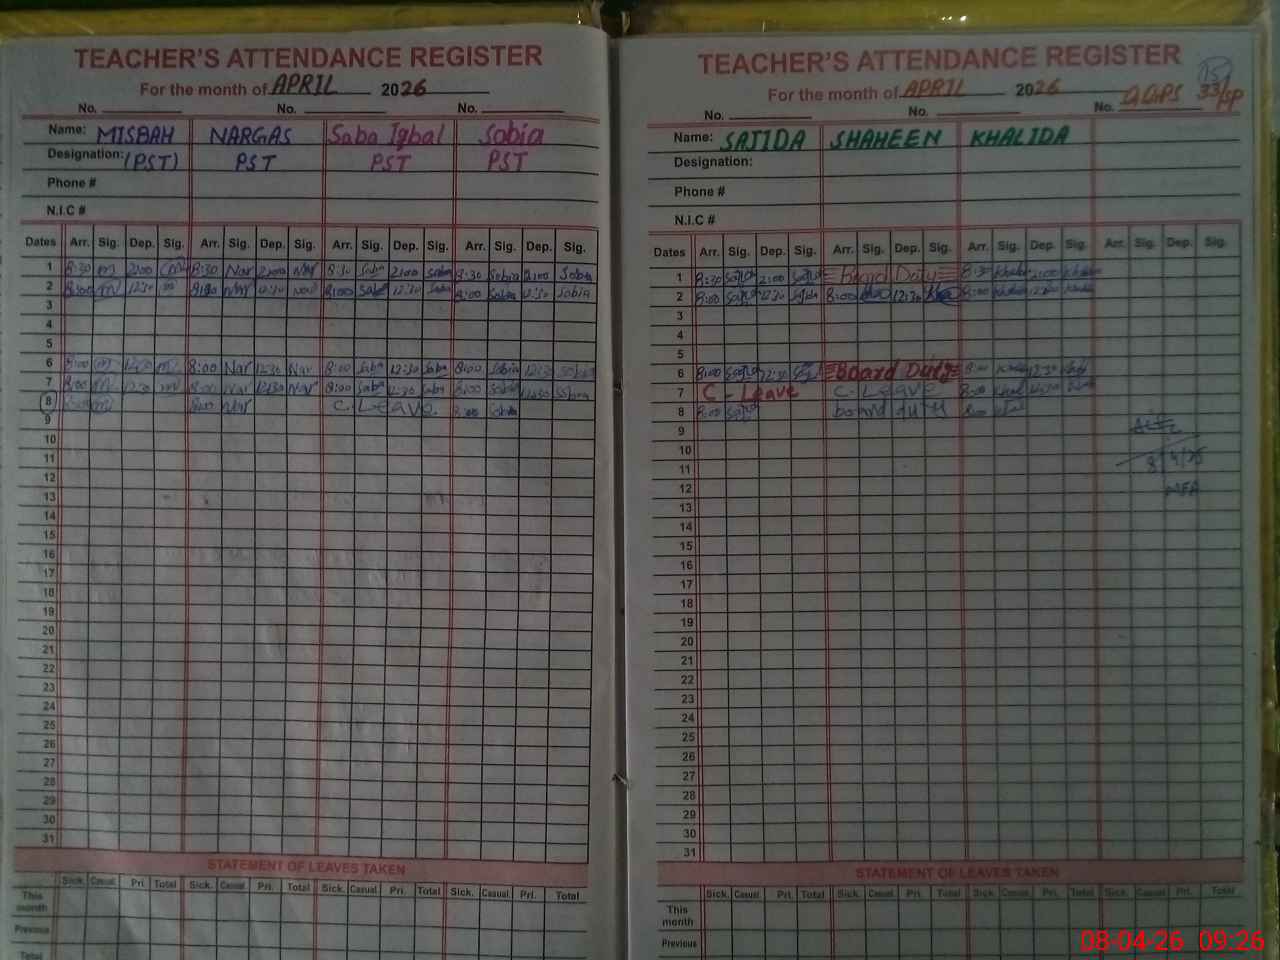 TEACHER'S ATTENDANCE REGISTER
For the month of APRIL 2026
No. No. No.
Name: MISBAH NARGAS Saba Iqbal Sobia
Designation: (PST) PST PST PST
Phone #
N.I.C #
Dates Arr. Sig. Dep. Sig. Arr. Sig. Dep. Sig. Arr. Sig. Dep. Sig. Arr. Sig. Dep. Sig.
1 8:30 m 2:00 m 8:30 Nar 2:00 Nar 8:30 Saba 2:00 Saba 8:30 Sobia 2:00 Sobia
2 8:00 m 12:30 m 8:00 Nar 12:30 Nar 8:00 Saba 12:30 Saba 8:00 Sobia 12:30 Sobia
3
4
5
6 8:00 m 12:30 m 8:00 Nar 12:30 Nar 8:00 Saba 12:30 Saba 8:00 Sobia 12:30 Sobia
7 8:00 m 12:30 m 8:00 Nar 12:30 Nar 8:00 Saba 12:30 Saba 8:00 Sobia 12:30 Sobia
8 8:00 m 8:00 Nar C.Leave. 8:00 Sobia
9
10
11
12
13
14
15
16
17
18
19
20
21
22
23
24
25
26
27
28
29
30
31
STATEMENT OF LEAVES TAKEN
Sick. Casual Pri. Total Sick. Casual Pri. Total Sick. Casual Pri. Total Sick. Casual Pri. Total
This month
Previous
Total
TEACHER'S ATTENDANCE REGISTER
For the month of APRIL 2026
No. No. No. GGPS 33/SP
15
Name: SAJIDA SHAHEEN KHALIDA
Designation:
Phone #
N.I.C #
Dates Arr. Sig. Dep. Sig. Arr. Sig. Dep. Sig. Arr. Sig. Dep. Sig. Arr. Sig. Dep. Sig.
1 8:30 Sajida 2:00 Sajida Board Duty 8:30 Khalida 2:00 Khalida
2 8:00 Sajida 12:30 Sajida 8:00 12:30 8:00 Khalida 12:30 Khalida
3
4
5
6 8:00 Sajida 12:30 Board Duty 8:00 12:30
7 C - Leave C - Leave 8:00 12:30
8 8:00 Sajida board duty 8:00
9
10
11
12
13
14
15
16
17
18
19
20
21
22
23
24
25
26
27
28
29
30
31
MEA
STATEMENT OF LEAVES TAKEN
Sick. Casual Pri. Total Sick. Casual Pri. Total Sick. Casual Pri. Total Sick. Casual Pri. Total
This month
Previous
08-04-26 09:26